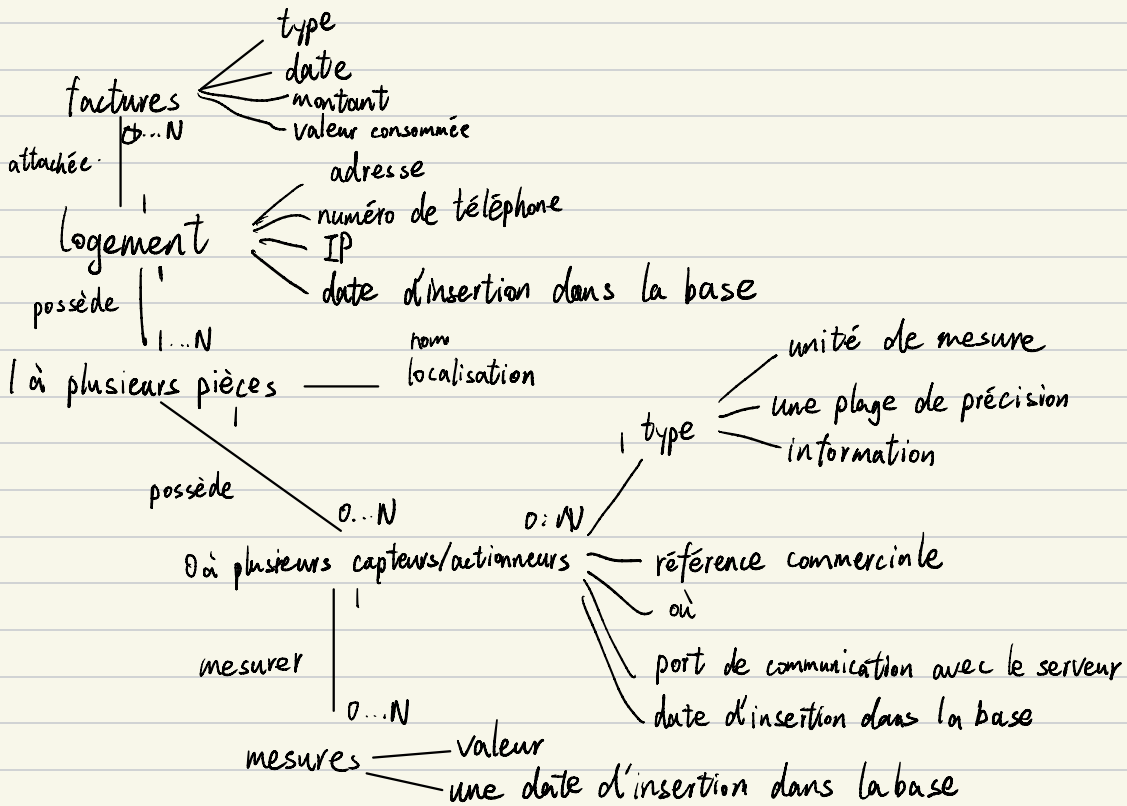 type
date
factures
montant
0...N
valeur consommée
attachée
adresse
1
numéro de téléphone
logement
IP
1
date d'insertion dans la base
possède
1...N
nom
unité de mesure
localisation
1 à plusieurs pièces
1
une plage de précision
1 type
information
possède
0...N
0:N
0 à plusieurs capteurs/actionneurs
référence commerciale
1
où
mesurer
port de communication avec le serveur
0...N
date d'insertion dans la base
mesures
valeur
une date d'insertion dans la base